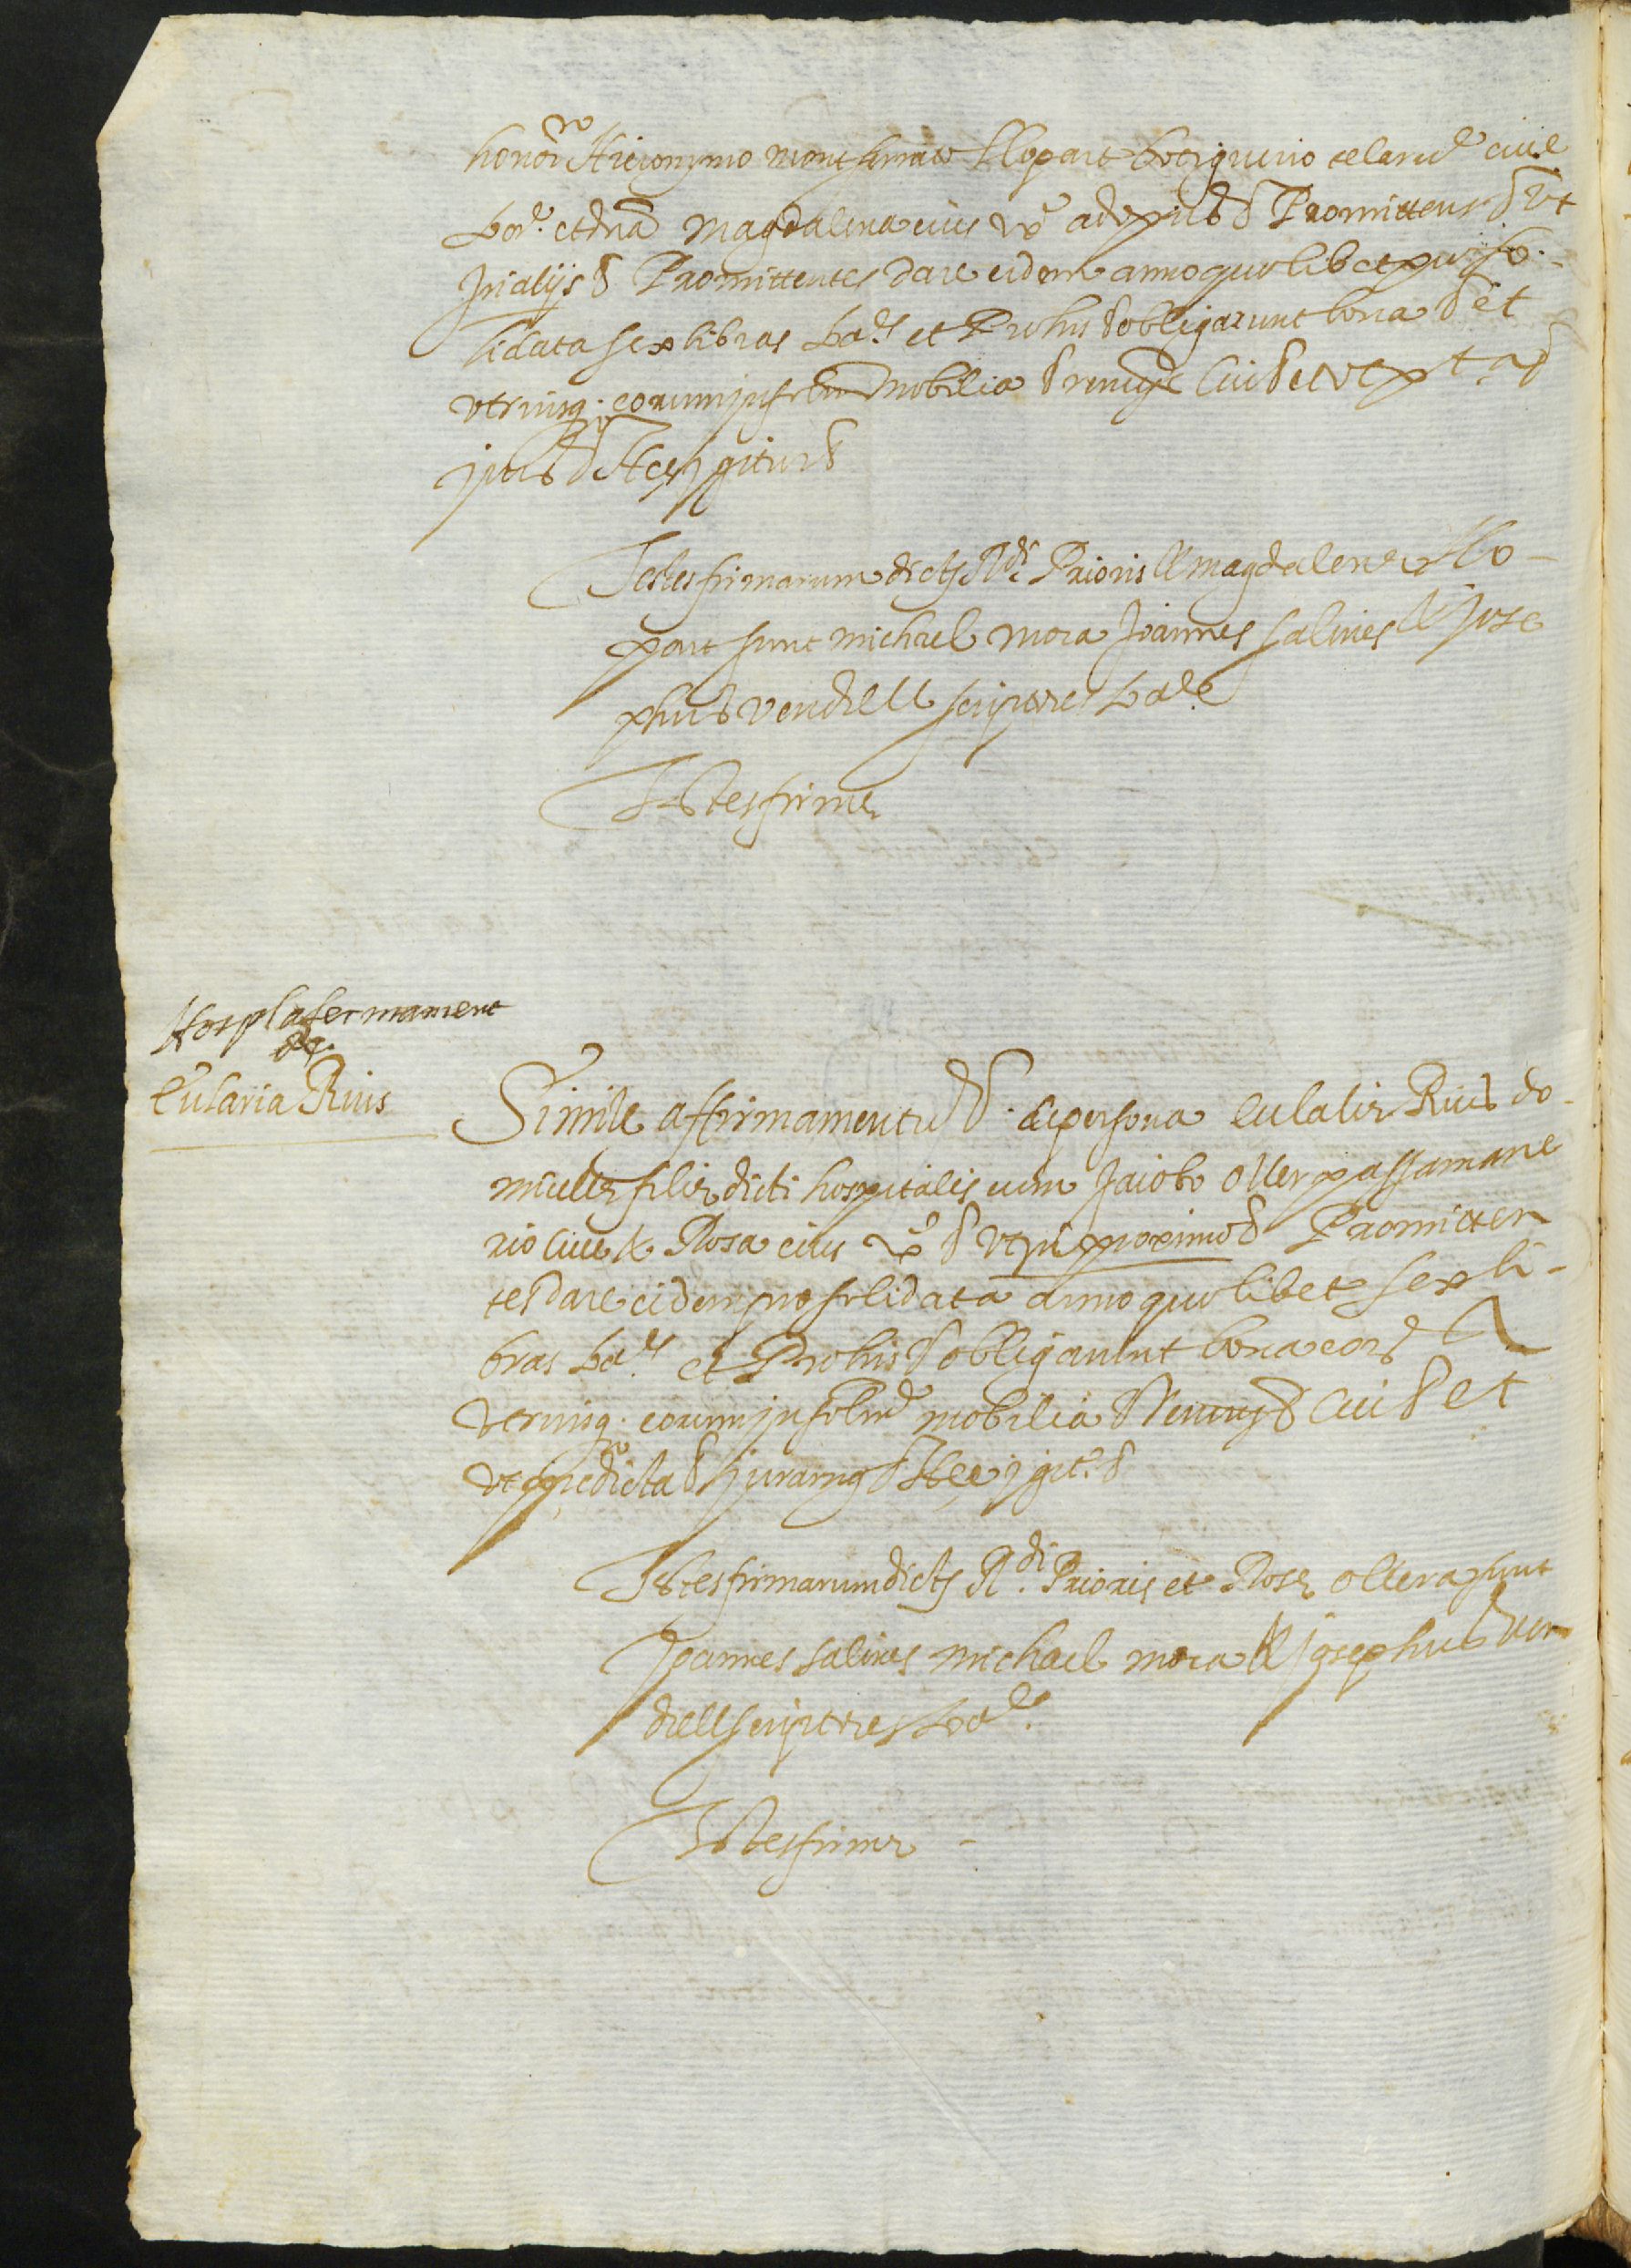 honor.ro Hieronymo Montserrat Llopart botiguerio telarũ cive
bar.e et dña Magdalena eius vẽ ad Promittens et ut
in alijs & Promittentes dare eidem anno quolibet pro so-
lidata sex libras bar.s et Pro his & obligarunt bona & et
utriusq. eorum insolũ mobilia & renun & Cui & et ut
Hec igitur &
Testes firmarum dictor R.di Prioris & Magdalene Llo-
part sunt Michael Mora Joannes Salines & Jose
phus Vendrell scriptores bar.e
Testes firme
Hospl afermament
de
Eularia Rius
Simile affirmamentũ & de persona Eulalie Rius do-
micelle filie dicti hospitalis cum Jacobo Oller passamane
rio cive & Rosa eius vẽ & ut in proximo & Promitten
tes dare eidem pro solidata anno quolibet sex li-
bras bar.s et Pro his & obligarunt bona eorũ &
utriusq. eorum insolũ mobilia & Renun & Cui & et
ut predicta & jurarunt & Hec igit.r &
Testes firmarum dictor R.di Prioris et Rose Ollera sunt
Joannes Salines Michael Mora & Josephus Ven
drell scriptores bar.e
Testes firme -